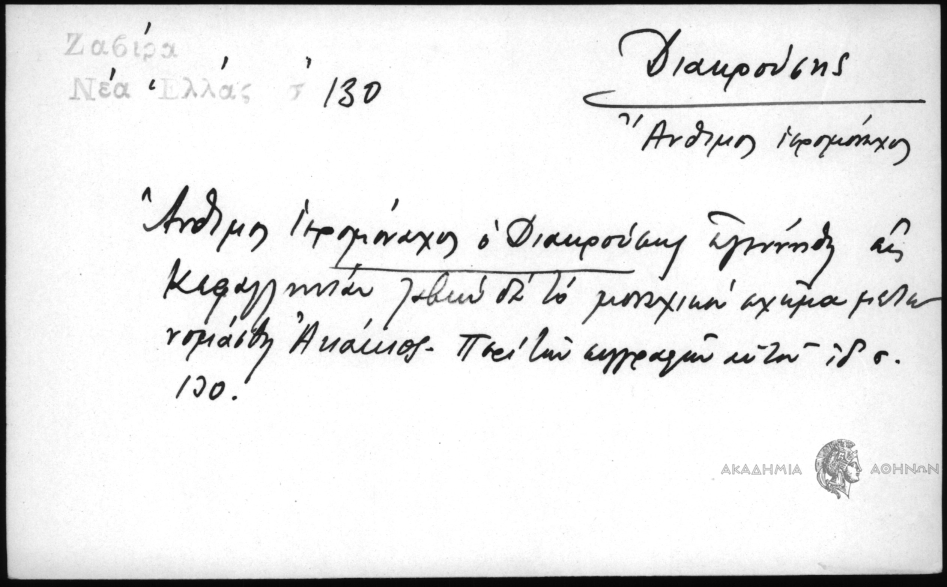 Ζαβίρα
Νέα Ἑλλάς σ 130
Διακρούσης
Ἄνθιμος ἱερομόναχος
Ἄνθιμος ἱερομόναχος ὁ Διακρούσης ἐγεννήθη εἰς
Κεφαλληνίαν λαβὼν δὲ τὸ μοναχικὸν σχῆμα μετω
νομάσθη Ἀκάκιος. Περὶ τῶν συγγραφῶν αὐτοῦ ἰδ σ.
130.
ΑΚΑΔΗΜΙΑ ΑΘΗΝΩΝ